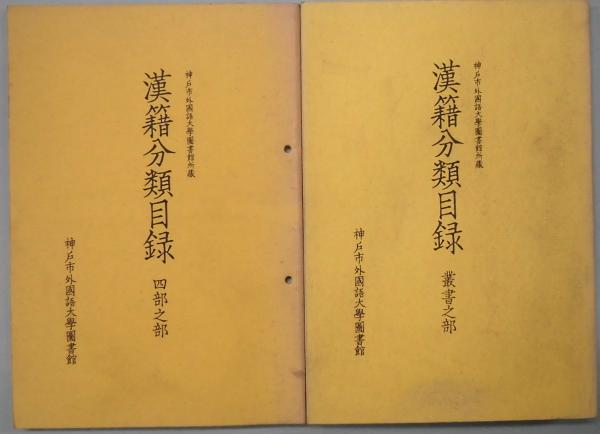 神戸市外國語大學圖書館所藏
漢籍分類目録
叢書之部
神戸市外國語大學圖書館
神戸市外國語大學圖書館所藏
漢籍分類目録
四部之部
神戸市外國語大學圖書館